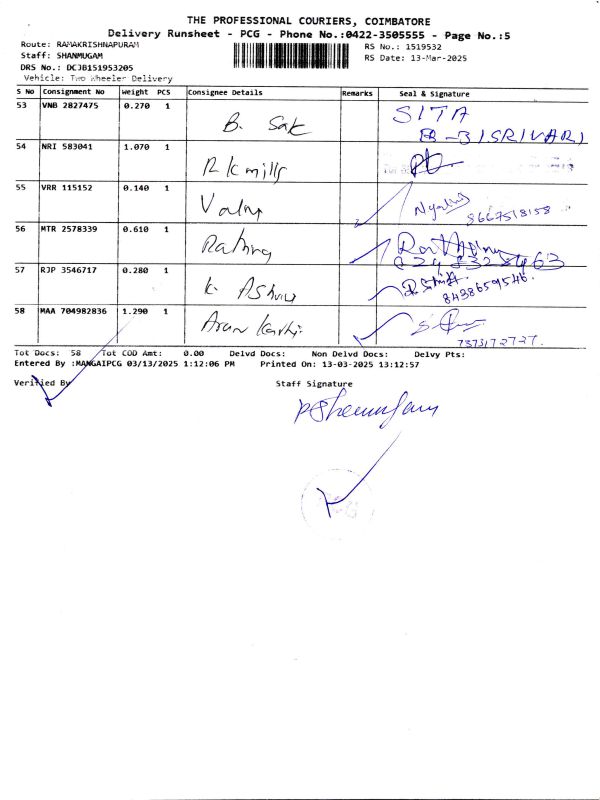 THE PROFESSIONAL COURIERS, COIMBATORE
Delivery Runsheet - PCG - Phone No.:0422-3505555 - Page No.:5
Route: RAMAKRISHNAPURAM
Staff: SHANMUGAM
DRS No.: DCJB151953205
Vehicle: Two Wheeler Delivery
RS No.: 1519532
RS Date: 13-Mar-2025
S No Consignment No Weight PCS Consignee Details Remarks Seal & Signature
53 VNB 2827475 0.270 1 B. Sak SITA
B-3 (SRIVARI)
54 NRI 583041 1.070 1 R K mills
55 VRR 115152 0.140 1 8667518158
56 MTR 2578339 0.610 1
57 RJP 3546717 0.280 1 K 8438659546
58 MAA 704982836 1.290 1 Arun 7373172727
Tot Docs: 58 Tot COD Amt: 0.00 Delvd Docs: Non Delvd Docs: Delvy Pts:
Entered By :MANGAIPCG 03/13/2025 1:12:06 PM Printed On: 13-03-2025 13:12:57
Verified By Staff Signature
P Shanmugam